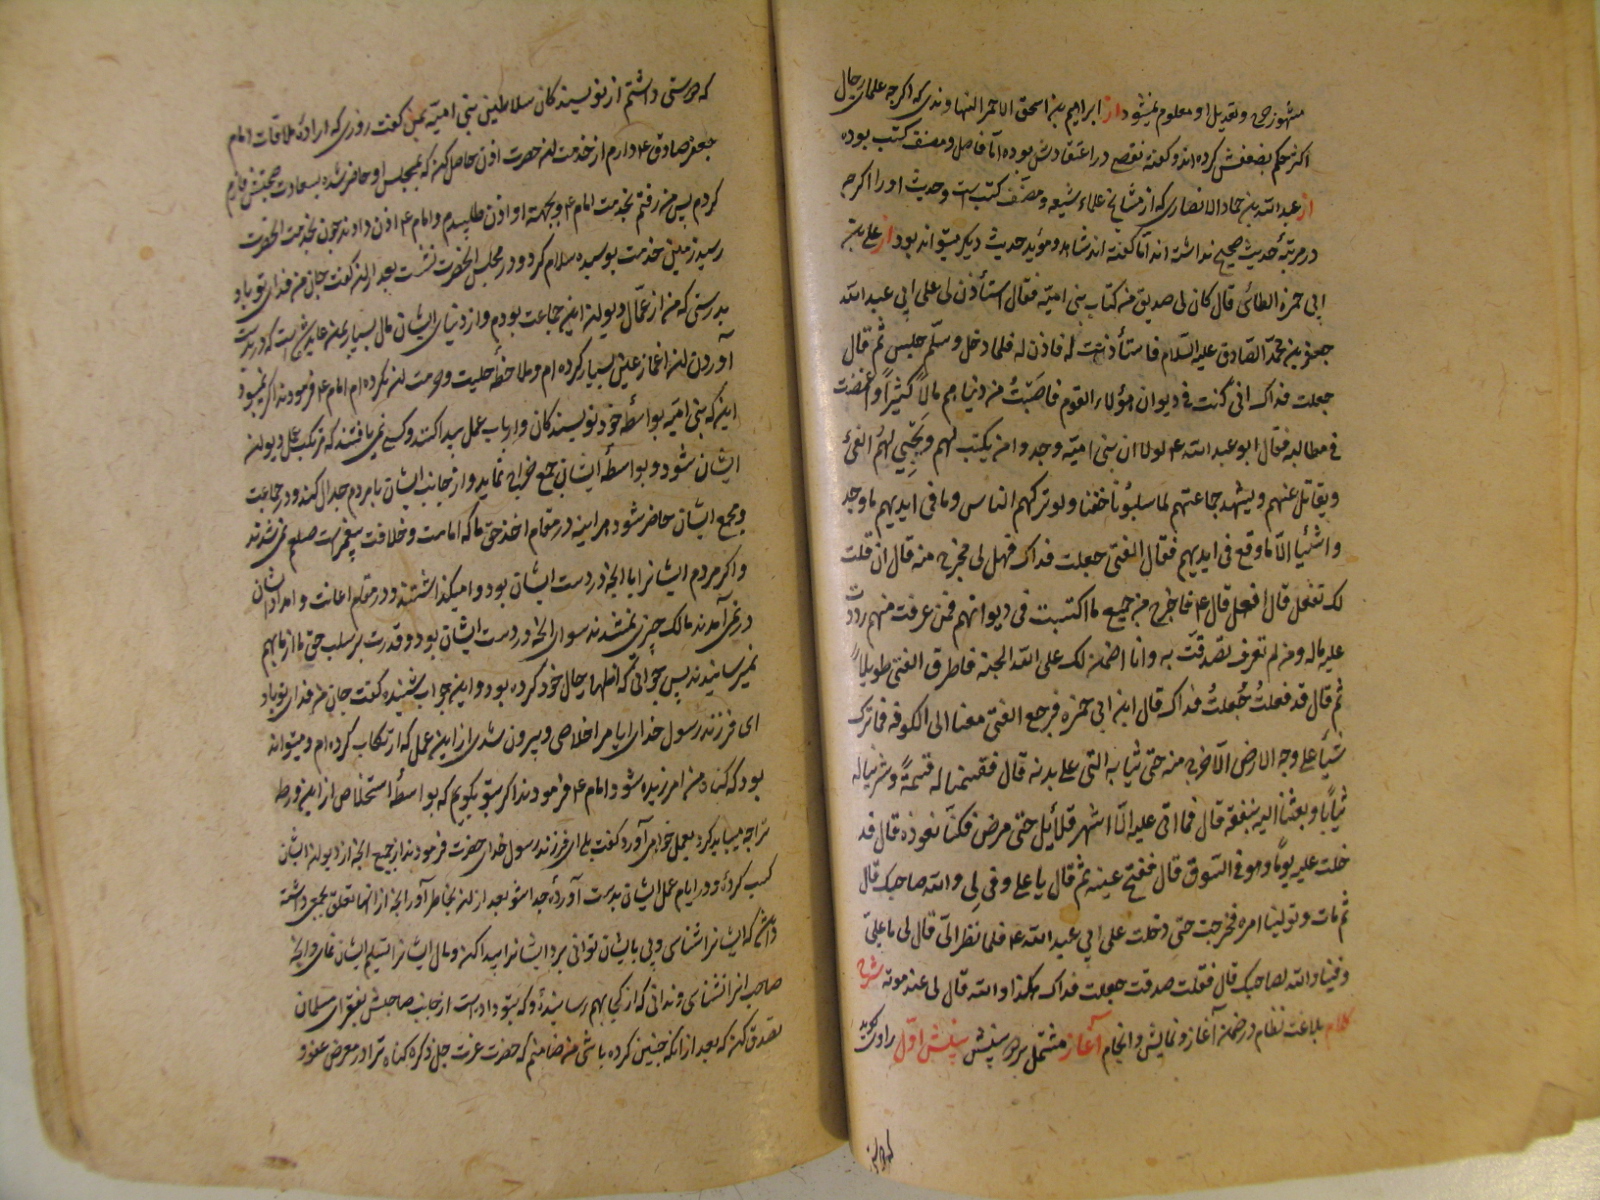 مشهور جرح و تعدیل او معلوم نمیشود از ابراهیم بن اسحق الاحمر النهاوندی که اگرچه علمای رجال
اکثر حکم بضعفش کرده اند و گفته نقصی در اعتقادش بوده اما فاضل و مصنف کتب بوده
از عبد الله بن حماد الانصاری که از مشایخ علماء شیعه و مصنف کتب است و حدیث او را اگرچه
در مرتبهٔ حدیث صحیح نداشته اند اما گفته اند شاهد و مؤید حدیث دیگر میتواند بود از علی بن
ابی حمزه الطائی قال کان لی صدیق من کتاب بنی امیه فقال استأذن لی علی ابی عبد الله
جعفر بن محمد الصادق علیه السلام فاستأذنت له فاذن له فلما دخل و سلّم جلس ثم قال
جعلت فداک انی کنت فی دیوان هؤلاء القوم فاصبتُ من دنیاهم مالاً کثیراً و اغمضت
فی مطالبه فقال ابو عبد الله ع لولا ان بنی امیه وجدوا من یکتب لهم و یجبی لهم الفئ
و یقاتل عنهم و یشهد جماعتهم لما سلبونا حقنا و لو ترکهم الناس و ما فی ایدیهم ما وجد
وا شیئا الا ما وقع فی ایدیهم فقال الفتی جعلت فداک فهل لی مخرج منه قال ان قلت
لک تفعل قال افعل قال ع فاخرج من جمیع ما اکتسبت فی دیوانهم فمن عرفت منهم رددت
علیه ماله و من لم تعرف تصدقت به و انا اضمن لک علی الله الجنة فاطرق الفتی طویلاً
ثم قال قد فعلتُ جُعلتُ فداک قال ابن ابی حمزه فرجع الفتی معنا الی الکوفه فما ترک
شیأ علی وجه الارض الا خرج منه حتی ثیابه التی علی بدنه قال فقسمنا له قسمةً و شرینا له
ثیاباً و بعثنا الیه بنفقة قال فما اتی علیه الا اشهر قلائل حتی مرض فکنا نعوده قال فد
خلت علیه یوماً و هو فی السوق قال ففتح عینیه ثم قال یا علی وفی لی و الله صاحبک قال
ثم مات و تولینا امره فخرجت حتی دخلت علی ابی عبد الله ع فلما نظر الیّ قال لی یا علیّ
وفینا و الله لصاحبک قال فقلت صدقت جعلت فداک هکذا و الله قال لی عند موته شرح
کلام بلاغت نظام در ضمن آغاز و نمایش و انجام آغاز مشتمل بر دو بینش بینش اوّل راوی گوید
که دوستی داشتم از نویسندکان سلاطین بنی امیّه بمن گفت روزی که اراده ملاقات امام
جعفر صادق ع دارم از خدمت آن حضرت اذن حاصل کن که بمجلس او حاضر شده بسعادت صحبتش فایز
کردم پس من رفتم بخدمت امام ع و بجهة او اذن طلبیدم و امام ع اذن دادند چون بخدمت آنحضرت
رسید زمین خدمت بوسیده سلام کرد و در مجلس آنحضرت نشست بعد از آن گفت جان من فدای تو باد
بدرستی که من از عمّال دیوان این جماعت بودم و از دنیای ایشان مال بسیار بمن عاید شده است که در بدست
آوردن آن اغماز عین بسیار کرده ام و ملاحظهٔ حلیت و حرمت آن نکرده ام امام ع فرمودند اکر نمیبود
این که بنی امیّه بواسطهٔ خود نویسندکان و ارباب عمل پیدا کنند و کسی نمی یافتند که مرتکب عمل دیوان
ایشان شود و بواسطهٔ ایشان جمع خراج نماید و از جانب ایشان با مردم جدال کند و در جماعت
و مجمع ایشان حاضر شود هر اینه در مقام اخذ حق ما که امامت و خلافت پیغمبرست صلعم نمی شدند
و اکر مردم ایشان را با آنچه در دست ایشان بود وامیکذاشتند و در مقام اعانت و امداد ایشان
در نمی آمدند مالک چیزی نمیشدند سوای آنچه در دست ایشان بود و قدرت بر سلب حق ما از ما بهم
نمیرسانیدند پس جوانی که اظهار حال خود کرده بود و این جواب شنیده گفت جان من فدای تو باد
ای فرزند رسول خدای ایا مرا خلاصی و بیرون شدی از این عمل که ارتکاب کرده ام و میتواند
بود که گناه من امرزیده شود امام ع فرمودند اکر بتو بگویم که بواسطهٔ استخلاص از این ورطه
ترا چه میباید کرد بعمل خواهی آورد گفت بلی ای فرزند رسول خدای حضرت فرمودند از جمیع آنچه از دیوان ایشان
کسب کردهٔ و در ایام عمل ایشان بدست آوردهٔ جدا شو بعد از آن بخاطر آور آنچه از انها تعلق بجمعی داشته
باشد که ایشان را شناسی و پی بایشان توانی برد ایشان را پیدا کن و مال ایشان را تسلیم ایشان نمای و آنچه
صاحب انرا نشناسی و ندانی که از کی بهم رسانیدهٔ و که بتو داده است از جانب صاحبش بفقرای مسلمان
تصدق کن که بعد از انکه چنین کرده باشی من ضامنم که حضرت عزت جل ذکره گناه ترا در معرض عفو